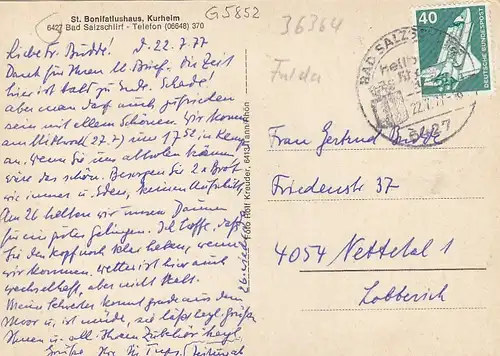 G5852
36364
St. Bonifatiushaus, Kurheim
6427 Bad Salzschlirf - Telefon (06648) 370
Fulda
40
DEUTSCHE BUNDESPOST
BAD SALZS
22.7.77
6427
d. 22.7.77
Dank für Ihren lb. Brief. Die Zeit
hier ist bald zu Ende. Schade!
aber man darf auch zufrieden
sein mit allem Schönen. Wir kommen
am Mittwoch (27.7) um 17 52 in
an. Wenn Sie uns abholen können,
wäre das schön. Besorgen Sie 2 x Brot
wie immer u. Eden, keinen Aufschnitt.
Am 26 halten wir unsern Daumen
für ein gutes Gelingen. Ich hoffe, daß
Sie den Kopf noch oben haben, wenn
wir kommen. Wetter ist hier auch
wechselhaft, aber nicht kalt.
Meine Schwester kommt grade aus dem
Moor u. ist müde, sie läßt herzl. grüßen
Ihnen u. all Ihrem Zubehör herzl.
Grüße Ihre
Foto Rolf Kreuder, 6413 Tann/Rhön
Frau Gertrud Budde
Friedenstr 37
4054 Nettetal 1
Lobberich